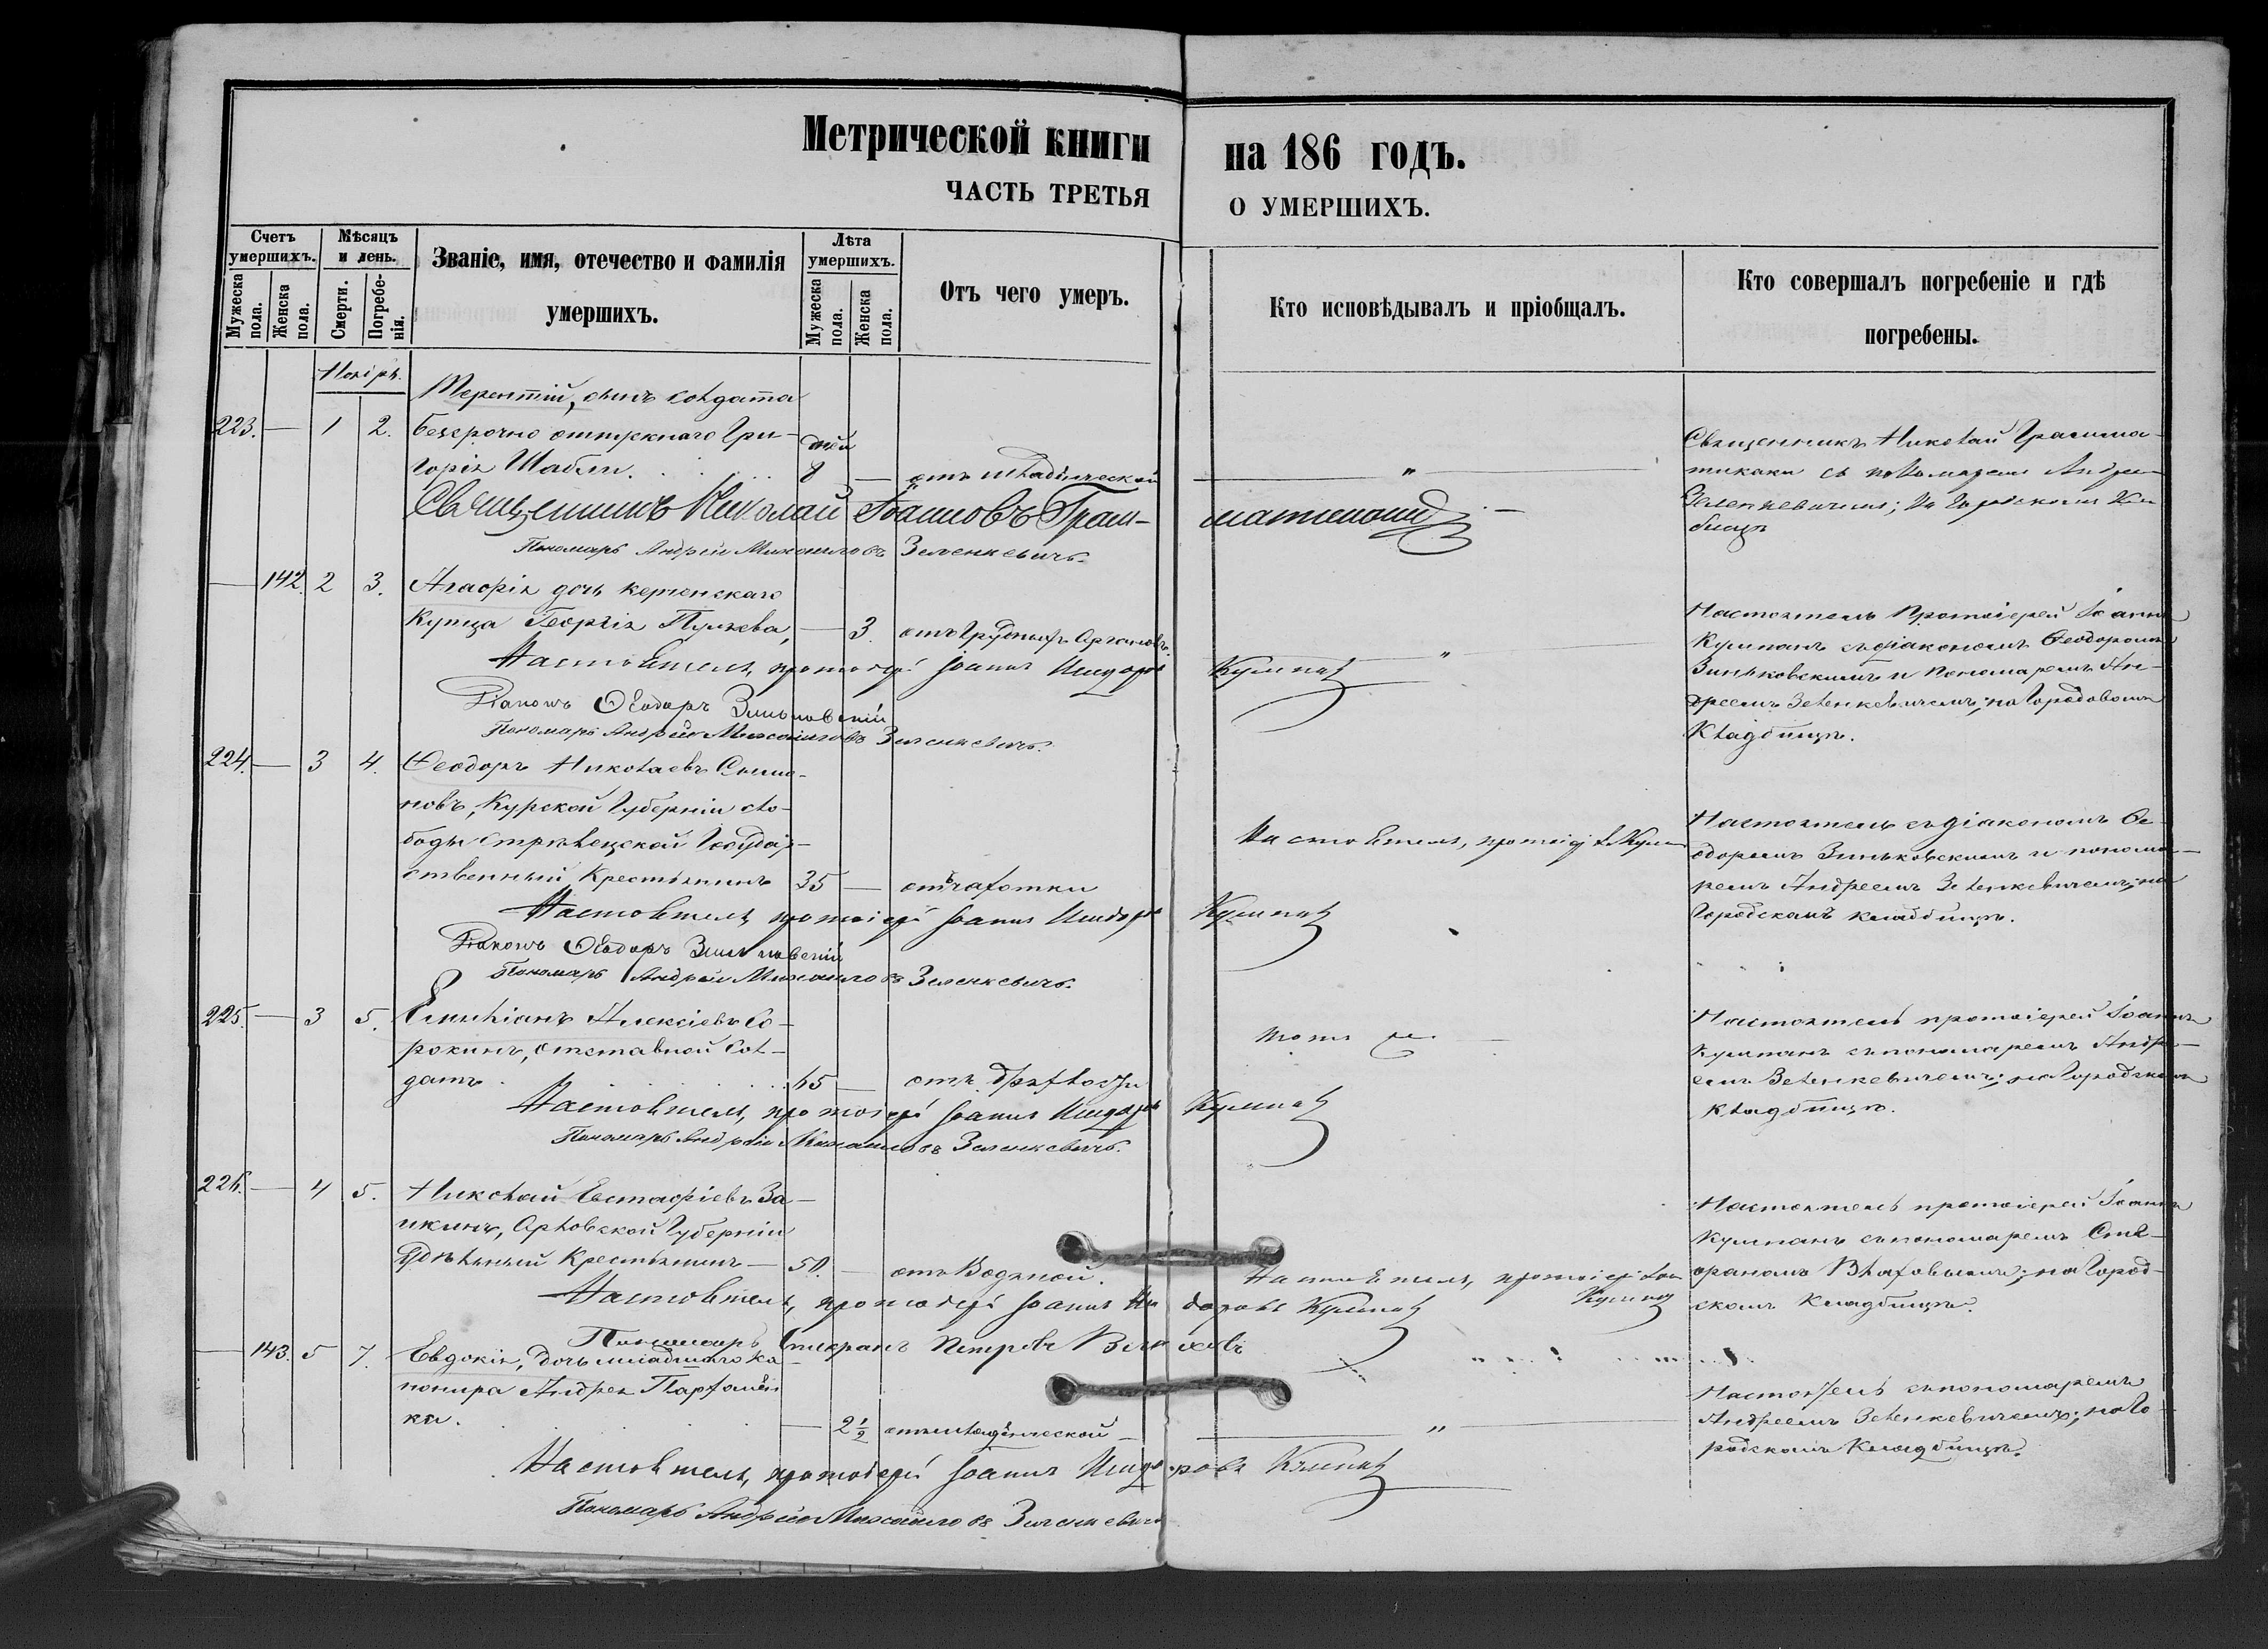 Метрической книги на 186 годъ.
ЧАСТЬ ТРЕТЬЯ О УМЕРШИХЪ.
Счетъ умершихъ.
Мужеска пола.
Женска пола.
Мѣсяцъ и день.
Смерти.
Погребенія.
Званіе, имя, отечество и фамилія умершихъ.
Лѣта умершихъ.
Мужеска пола.
Женска пола.
Отъ чего умеръ.
Кто исповѣдывалъ и пріобщалъ.
Кто совершалъ погребеніе и гдѣ погребены.
Ноябрь.
223. — 1 2.
Терентій, сынъ солдата
безсрочно отпускнаго Гри-
горія Шабли.
дней
8 — отъ младенческой
— „ —
Священникъ Николай Грамма-
тикаки съ пономаремъ Андре
Зеленкевичемъ; на городскомъ кла
бищѣ
Священникъ Николай Іоанновъ Грам-
матикаки
Пономарь Андрей Михайловъ Зеленкевичъ.
— 142. 2 3.
Агафія дочь керченскаго
купца Георгія
— 3. отъ грудныхъ
— „ —
Настоятель Протоіерей Іоаннъ
Кумпанъ съ діакономъ Ѳеодоромъ
Зиньковскимъ и пономаремъ Ан-
дреемъ Зеленкевичемъ; на Городовомъ
Кладбищѣ.
Настоятель, протоіерей Іоаннъ Исидоровъ Кумпанъ
Діаконъ Ѳеодоръ Зиньковскій
Пономарь Андрей Михайловъ Зеленкевичъ.
224. — 3 4.
Ѳеодоръ Николаевъ
новъ, Курской Губерніи сло-
боды Стрѣлецкой Государ-
ственный Крестьянинъ
35 — отъ чахотки
Настоятель, протоіерей І. Кумпанъ
Настоятель съ діакономъ Ѳе-
одоромъ Зиньковскимъ и понома-
ремъ Андреемъ Зеленкевичемъ; на
Городскомъ кладбищѣ.
Настоятель, протоіерей Іоаннъ Исидоровъ Кумпанъ
Діаконъ Ѳеодоръ Зиньковскій
Пономарь Андрей Михайловъ Зеленкевичъ.
225. — 3 5.
Емиліанъ Алексіевъ Со-
рокинъ, отставной Сол-
датъ.
65 — отъ дряхлости
тотъ же
Настоятель протоіерей Іоаннъ
Кумпанъ съ пономаремъ Андре-
емъ Зеленкевичемъ; на Городскомъ
Кладбищѣ.
Настоятель, протоіерей Іоаннъ Исидоровъ Кумпанъ
Пономарь Андрей Михайловъ Зеленкевичъ.
226. — 4 5.
Николай Евстафіевъ За-
икинъ, Орловской Губерніи
Удѣльный Крестьянинъ —
50. — отъ Водяной.
Настоятель, протоіерей Іоан
Кумпанъ
Настоятель протоіерей Іоаннъ
Кумпанъ съ пономаремъ Сте-
фаномъ Влаховымъ; на Город-
скомъ Кладбищѣ.
Настоятель, протоіерей Іоаннъ Исидоровъ Кумпанъ
Пономарь Стефанъ Петровъ Влаховъ
— 143. 5 7.
Евдокія, дочь младшаго ка-
нонира Андрея Парфомен-
ки.
— 2½ отъ младенческой —
— „ —
Настоятель съ пономаремъ
Андреемъ Зеленкевичемъ; на Го-
родскомъ Кладбищѣ.
Настоятель, протоіерей Іоаннъ Исидоровъ Кумпанъ
Пономарь Андрей Михайловъ Зеленкевичъ